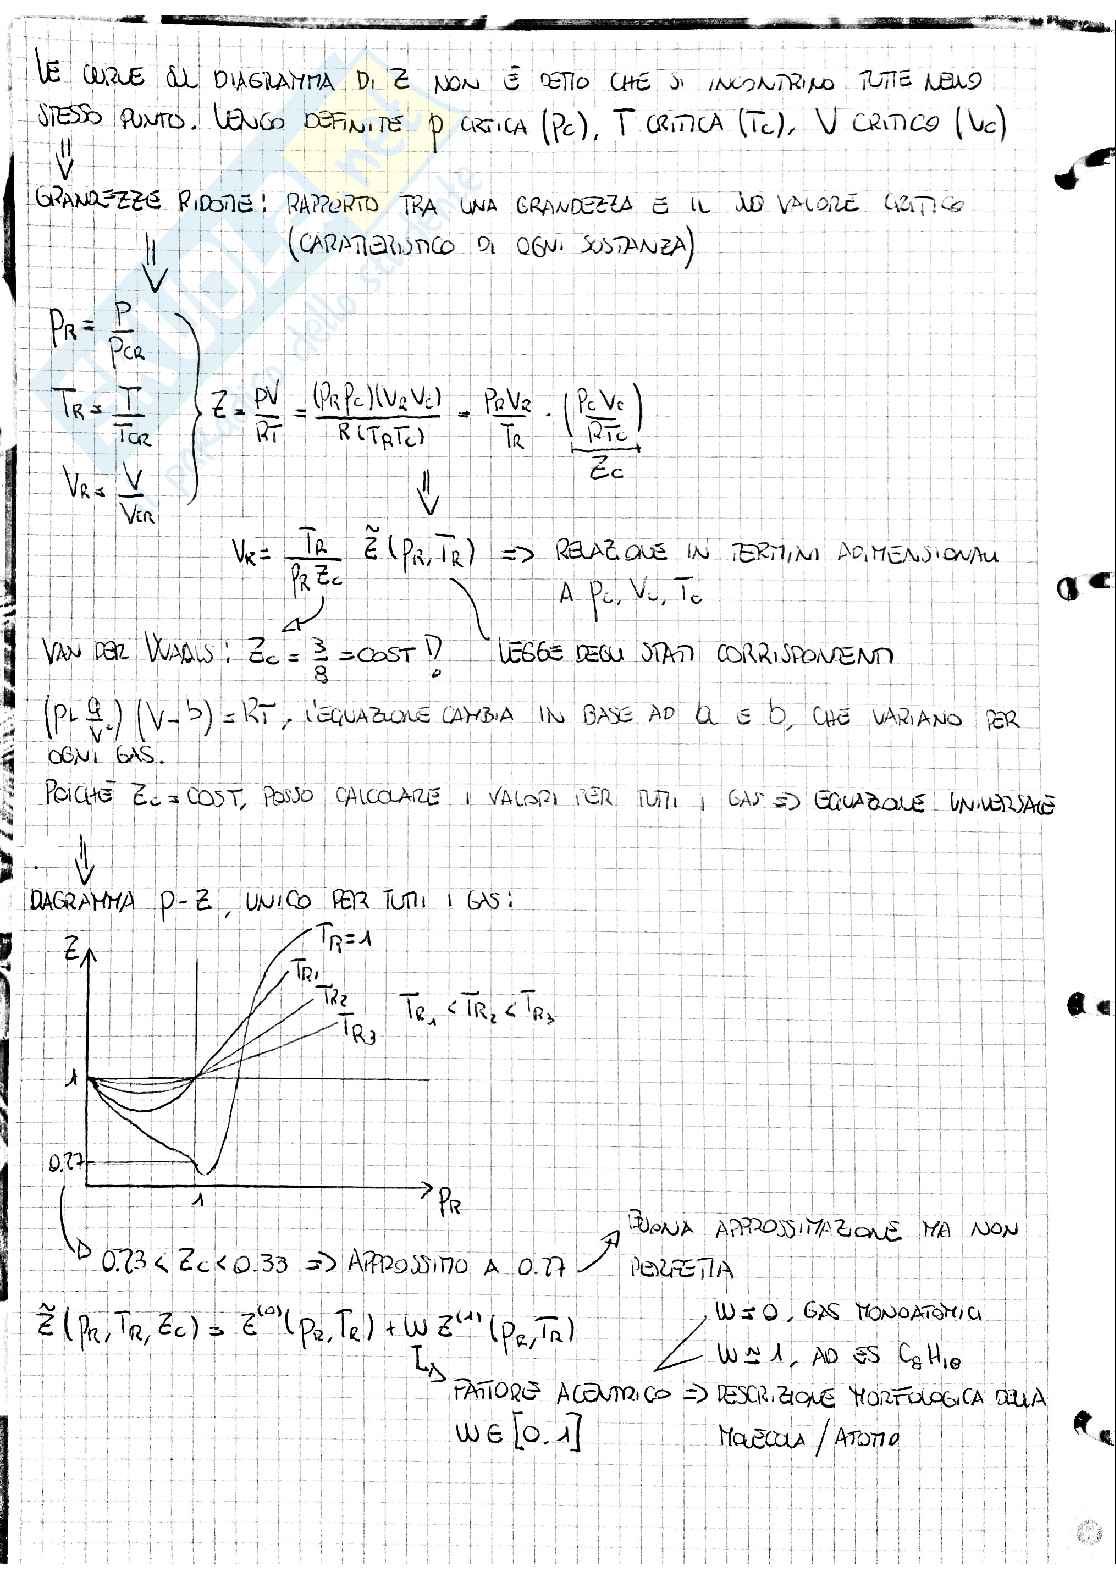 LE CURVE SUL DIAGRAMMA DI Z NON È DETTO CHE SI INCONTRINO TUTTE NELLO
STESSO PUNTO. VENGO DEFINITE p CRTICA (Pc), T CRITICA (Tc), V CRITICO (Vc)
⇓
GRANDEZZE RIDOTTE: RAPPORTO TRA UNA GRANDEZZA E IL SUO VALORE CRITICO
(CARATTERISTICO DI OGNI SOSTANZA)
⇓
pR = P/PCR
TR = T/TCR
VR = V/VCR
Z = pV/RT = (pR pc)(VR Vc)/R(TR Tc) = pR VR/TR · (pc Vc/RTc)
Zc
⇓
VR = TR/(pR Zc) Z̃(pR, TR) => RELAZIONE IN TERMINI ADIMENSIONALI
A pc, Vc, Tc
VAN DER WAALS: Zc = 3/8 = COST !
LEGGE DEGLI STATI CORRISPONDENTI
(p+ a/V²) (V-b) = RT, L'EQUAZIONE CAMBIA IN BASE AD a E b, CHE VARIANO PER
OGNI GAS.
POICHÈ Zc = COST, POSSO CALCOLARE I VALORI PER TUTTI I GAS => EQUAZIONE UNIVERSALE
⇓
DAGRAMMA p-Z, UNICO PER TUTTI I GAS:
Z
TR=1
TR1
TR2
TR3
TR1 < TR2 < TR3
1
0.27
1
pR
0.23 < Zc < 0.33 => APPROSSIMO A 0.27
BUONA APPROSSIMAZIONE MA NON
PERFETTA
Z̃(pR, TR, Zc) = Z⁽⁰⁾(pR, TR) + W Z⁽¹⁾(pR, TR)
W = 0, GAS MONOATOMICI
W ≃ 1, AD ES C8H18
FATTORE ACENTRICO => DESCRIZIONE MORFOLOGICA DELLA
MOLECOLA / ATOMO
W ∈ [0.1]